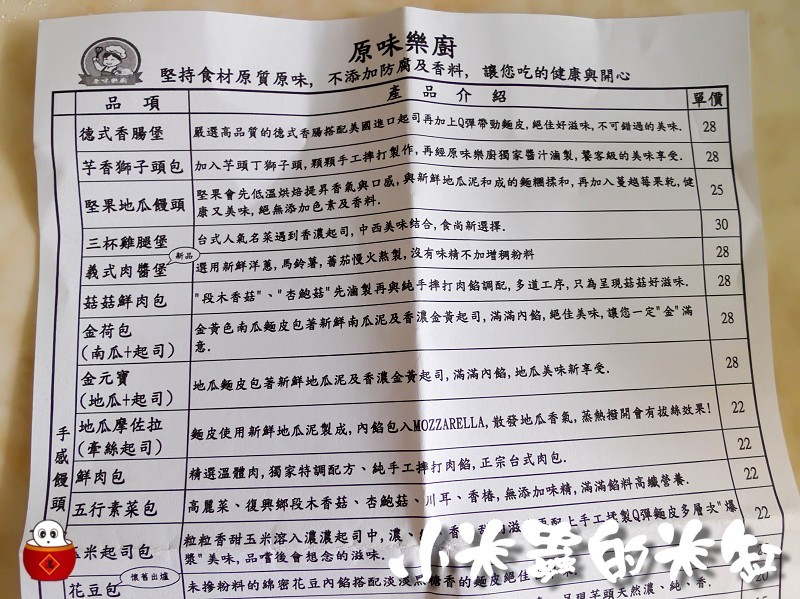 原味樂廚
堅持食材原質原味, 不添加防腐及香料, 讓您吃的健康與開心
品項 產品介紹 單價
德式香腸堡 嚴選高品質的德式香腸搭配美國進口起司再加上Q彈帶勁麵皮,絕佳好滋味,不可錯過的美味. 28
芋香獅子頭包 加入芋頭丁獅子頭,顆顆手工摔打製作,再經原味樂廚獨家醬汁滷製,饕客級的美味享受. 28
堅果地瓜饅頭 堅果會先低溫烘焙提昇香氣與口感,與新鮮地瓜泥和成的麵糰揉和,再加入蔓越莓果乾,健 25
康又美味,絕無添加色素及香料.
三杯雞腿堡 台式人氣名菜遇到香濃起司,中西美味结合,食尚新選擇. 30
新品
義式肉醬堡 選用新鮮洋蔥,馬鈴薯,蕃茄慢火熬製,沒有味精不加增稠粉料 28
菇菇鮮肉包 "段木香菇"、"杏鮑菇"先滷製再與純手摔打肉餡調配,多道工序,只為呈現菇菇好滋味. 28
金荷包 金黃色南瓜麵皮包著新鮮南瓜泥及香濃金黃起司,滿滿內餡,絕佳美味,讓您一定"金"滿 28
(南瓜+起司) 意.
金元寶
(地瓜+起司) 地瓜麵皮包著新鮮地瓜泥及香濃金黃起司,滿滿內餡,地瓜美味新享受. 28
地瓜摩佐拉
(牽絲起司) 麵皮使用新鮮地瓜泥製成,內餡包入MOZZARELLA,散發地瓜香氣,蒸熱撥開會有拔絲效果! 22
手感饅頭
鮮肉包 精選溫體肉,獨家特調配方、純手工摔打肉餡,正宗台式肉包. 22
五行素菜包 高麗菜、復興鄉段木香菇、杏鮑菇、川耳、香椿,無添加味精,滿滿餡料高纖營養. 22
玉米起司包 粒粒香甜玉米溶入濃濃起司中,濃、香、 上手工揉製Q彈麵皮多層次"爆 22
漿"美味,品嚐後會想念的滋味.
懷舊出爐
花豆包 未摻粉料的綿密花豆內餡搭配淡淡黑糖香的麵皮絕佳
呈現芋頭天然濃、純、香.
小米蟲的米缸